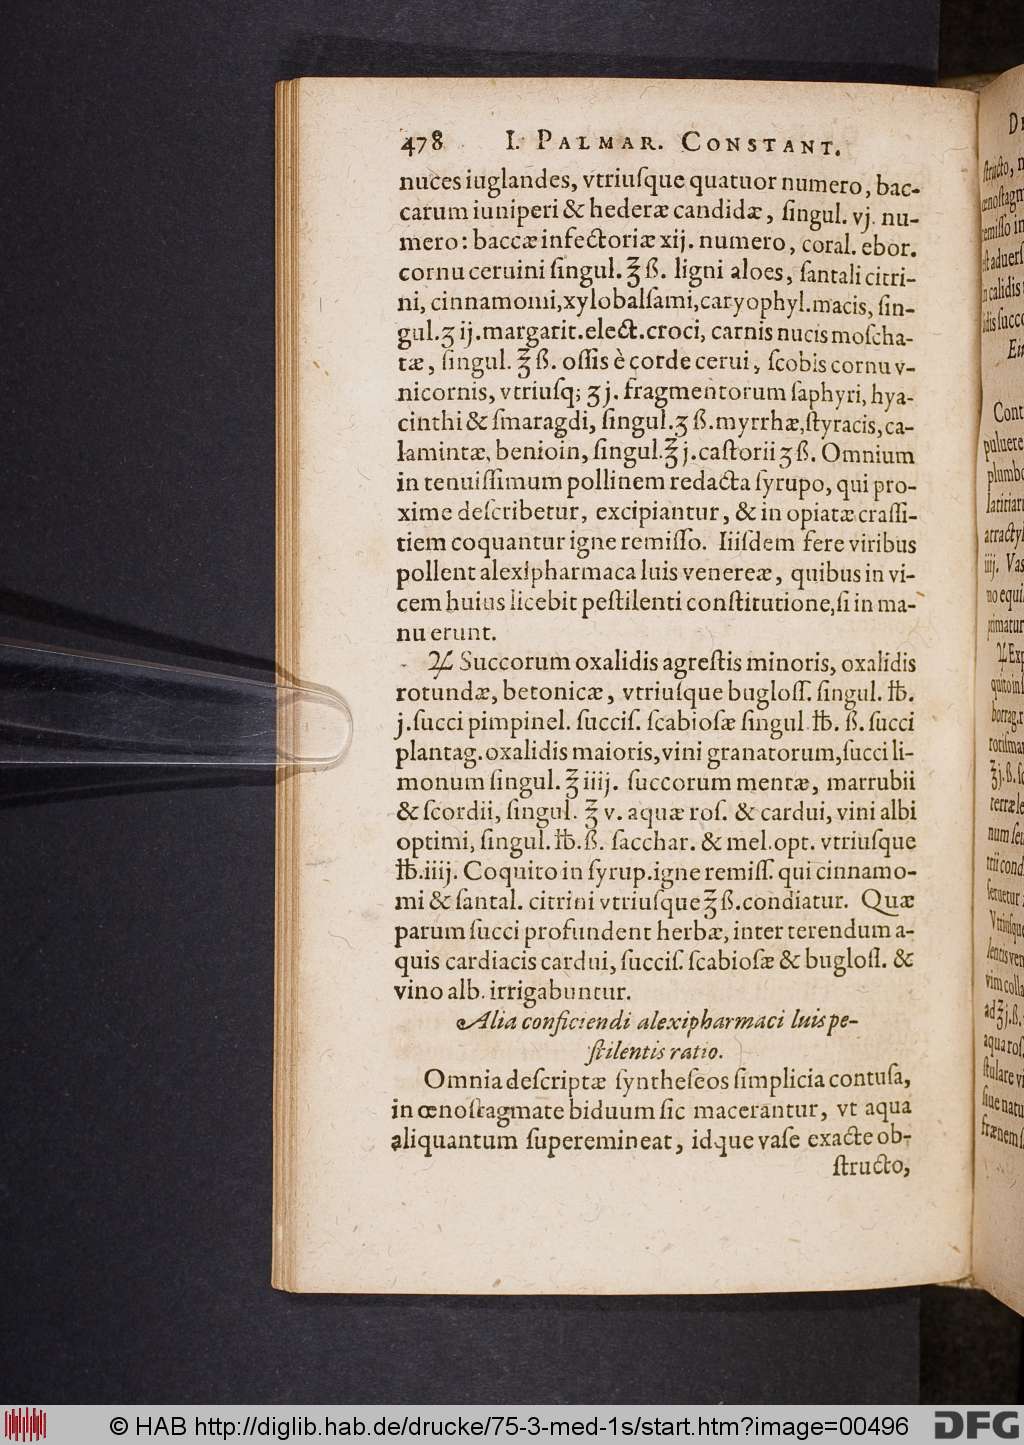 478 I. PALMAR. CONSTANT.
nuces iuglandes, vtriuſque quatuor numero, bac-
carum iuniperi & hederæ candidæ, ſingul. vj. nu-
mero: baccæ infectoriæ xij. numero, coral. ebor.
cornu ceruini ſingul. ℥ ß. ligni aloes, ſantali citri-
ni, cinnamomi, xylobalſami, caryophyl. macis, ſin-
gul. ʒ ij. margarit. elect. croci, carnis nucis moſcha-
tæ, ſingul. ℥ ß. oſſis è corde cerui, ſcobis cornu v-
nicornis, vtriuſq; ʒ j. fragmentorum ſaphyri, hya-
cinthi & ſmaragdi, ſingul. ʒ ß. myrrhæ, ſtyracis, ca-
lamintæ, benioin, ſingul. ℥ j. caſtorii ʒ ß. Omnium
in tenuiſſimum pollinem redacta ſyrupo, qui pro-
xime deſcribetur, excipiantur, & in opiatæ craſſi-
tiem coquantur igne remiſſo. Iiiſdem fere viribus
pollent alexipharmaca luis venereæ, quibus in vi-
cem huius licebit peſtilenti conſtitutione, ſi in ma-
nu erunt.
♃ Succorum oxalidis agreſtis minoris, oxalidis
rotundæ, betonicæ, vtriuſque bugloſſ. ſingul. ℔.
j. ſucci pimpinel. ſucciſ. ſcabioſæ ſingul. ℔. ß. ſucci
plantag. oxalidis maioris, vini granatorum, ſucci li-
monum ſingul. ℥ iiij. ſuccorum mentæ, marrubii
& ſcordii, ſingul. ℥ v. aquæ roſ. & cardui, vini albi
optimi, ſingul. ℔. ß. ſacchar. & mel. opt. vtriuſque
℔. iiij. Coquito in ſyrup. igne remiſſ. qui cinnamo-
mi & ſantal. citrini vtriuſque ℥ ß. condiatur. Quæ
parum ſucci profundent herbæ, inter terendum a-
quis cardiacis cardui, ſucciſ. ſcabioſæ & bugloſſ. &
vino alb. irrigabuntur.
Alia conficiendi alexipharmaci luis pe-
ſtilentis ratio.
Omnia deſcriptæ ſyntheſeos ſimplicia contuſa,
in œnoſtagmate biduum ſic macerantur, vt aqua
aliquantum ſuperemineat, idque vaſe exacte ob-
ſtructo,
© HAB http://diglib.hab.de/drucke/75-3-med-1s/start.htm?image=00496
DFG